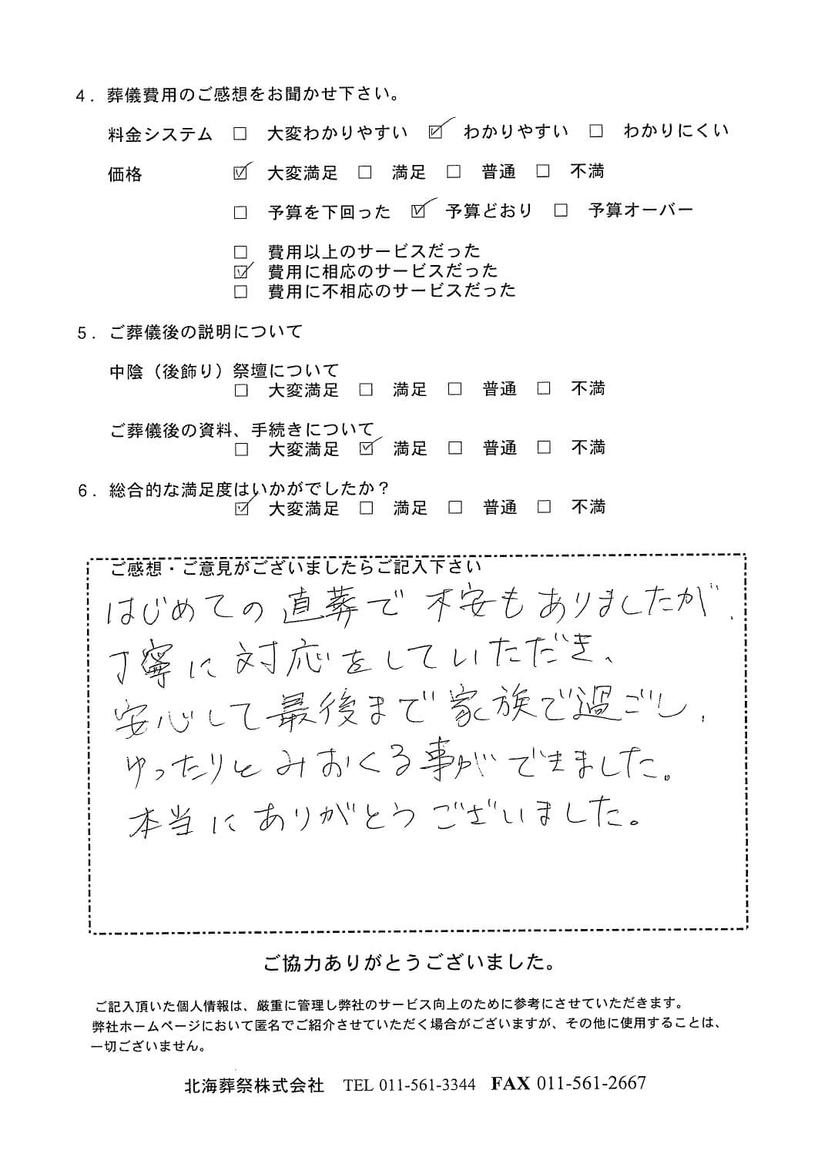 4．葬儀費用のご感想をお聞かせ下さい。
料金システム □ 大変わかりやすい ☑ わかりやすい □ わかりにくい
価格 ☑ 大変満足 □ 満足 □ 普通 □ 不満
□ 予算を下回った ☑ 予算どおり □ 予算オーバー
□ 費用以上のサービスだった
☑ 費用に相応のサービスだった
□ 費用に不相応のサービスだった
5．ご葬儀後の説明について
中陰（後飾り）祭壇について
□ 大変満足 □ 満足 □ 普通 □ 不満
ご葬儀後の資料、手続きについて
□ 大変満足 ☑ 満足 □ 普通 □ 不満
6．総合的な満足度はいかがでしたか？
☑ 大変満足 □ 満足 □ 普通 □ 不満
ご感想・ご意見がございましたらご記入下さい
はじめての直葬で不安もありましたが、
丁寧に対応をしていただき、
安心して最後まで家族で過ごし、
ゆったりとみおくる事ができました。
本当にありがとうございました。
ご協力ありがとうございました。
ご記入頂いた個人情報は、厳重に管理し弊社のサービス向上のために参考にさせていただきます。
弊社ホームページにおいて匿名でご紹介させていただく場合がございますが、その他に使用することは、
一切ございません。
北海葬祭株式会社 TEL 011-561-3344 FAX 011-561-2667